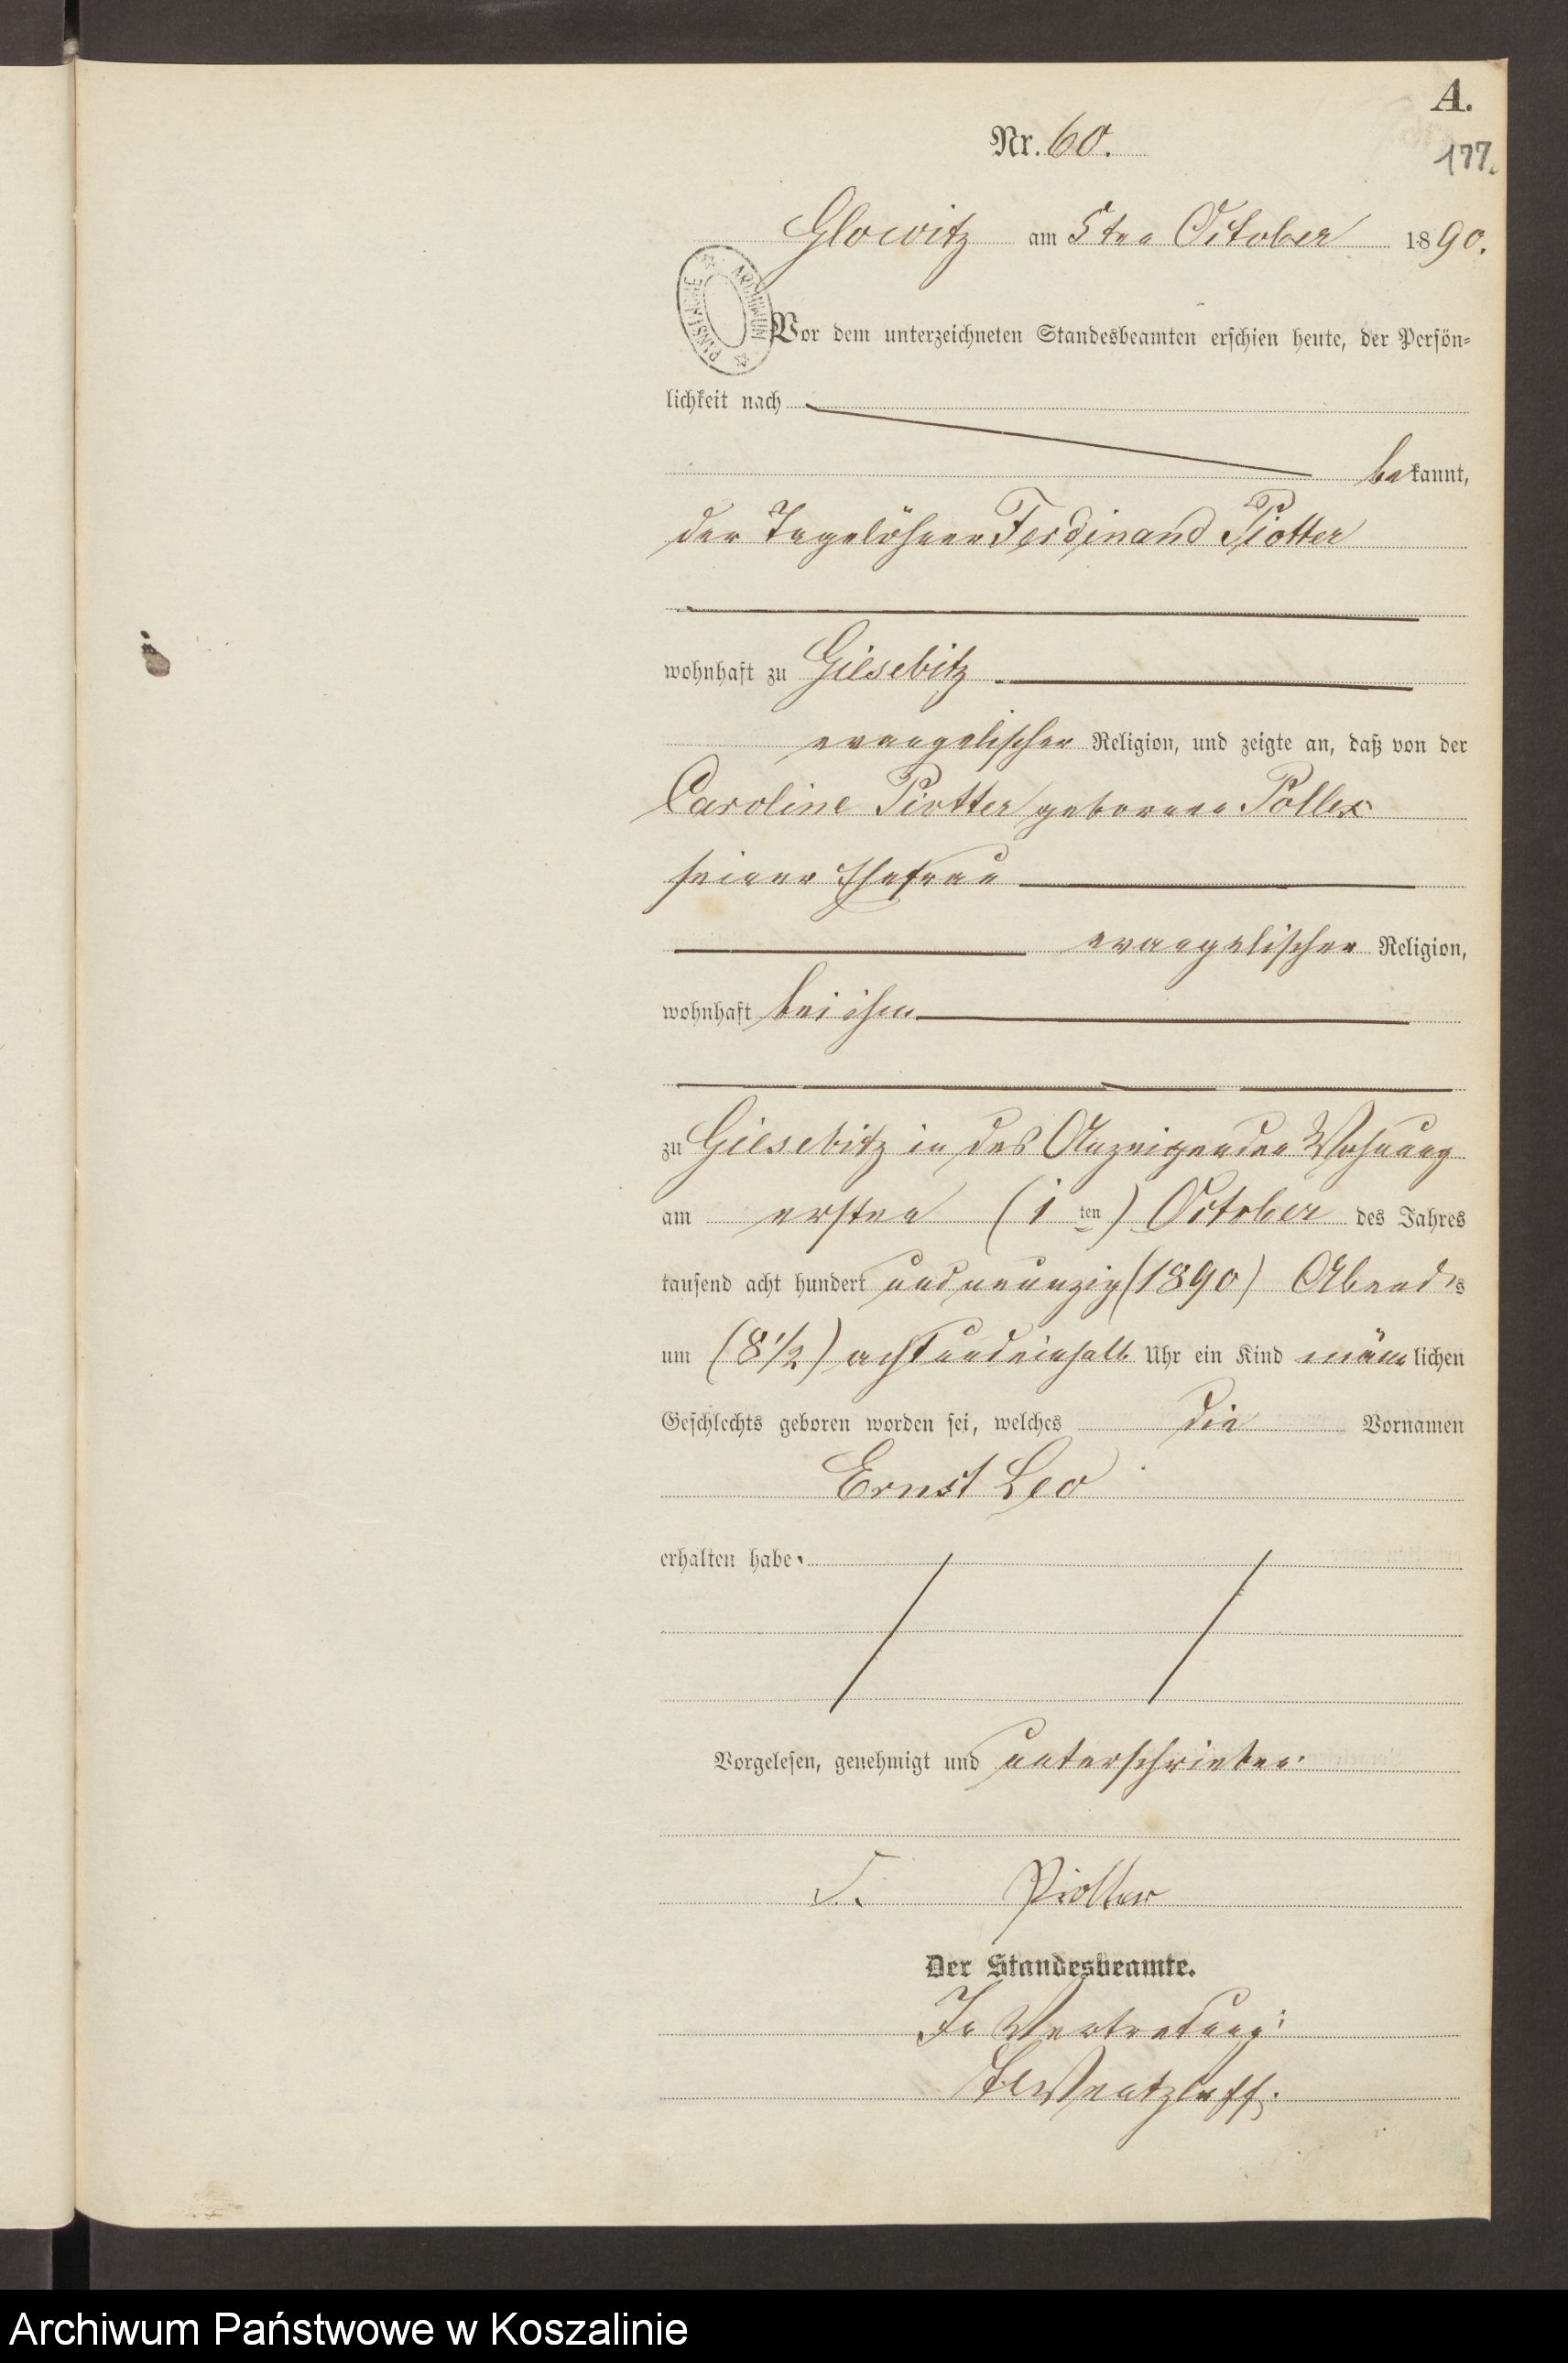 A.
Nr. 60.
177.
Glowitz am 5ten October 1890.
ARCHIWUM PAŃSTWOWE
Vor dem unterzeichneten Standesbeamten erschien heute, der Persön-
lichkeit nach
bekannt,
der Tagelöhner Ferdinand Piotter
wohnhaft zu Giesebitz
evangelischer Religion, und zeigte an, daß von der
Caroline Piotter geborene Pollex
seiner Ehefrau
evangelischer Religion,
wohnhaft bei ihm
zu Giesebitz in des Anzeigenden Wohnung
am ersten (1 ten) October des Jahres
tausend acht hundert und neunzig (1890) Abends
um (8 1/2) acht und einhalb Uhr ein Kind männlichen
Geschlechts geboren worden sei, welches die Vornamen
Ernst Leo
erhalten habe.
Vorgelesen, genehmigt und unterschrieben.
F. Piotter
Der Standesbeamte.
In Vertretung:
Wentzlaff.
Archiwum Państwowe w Koszalinie